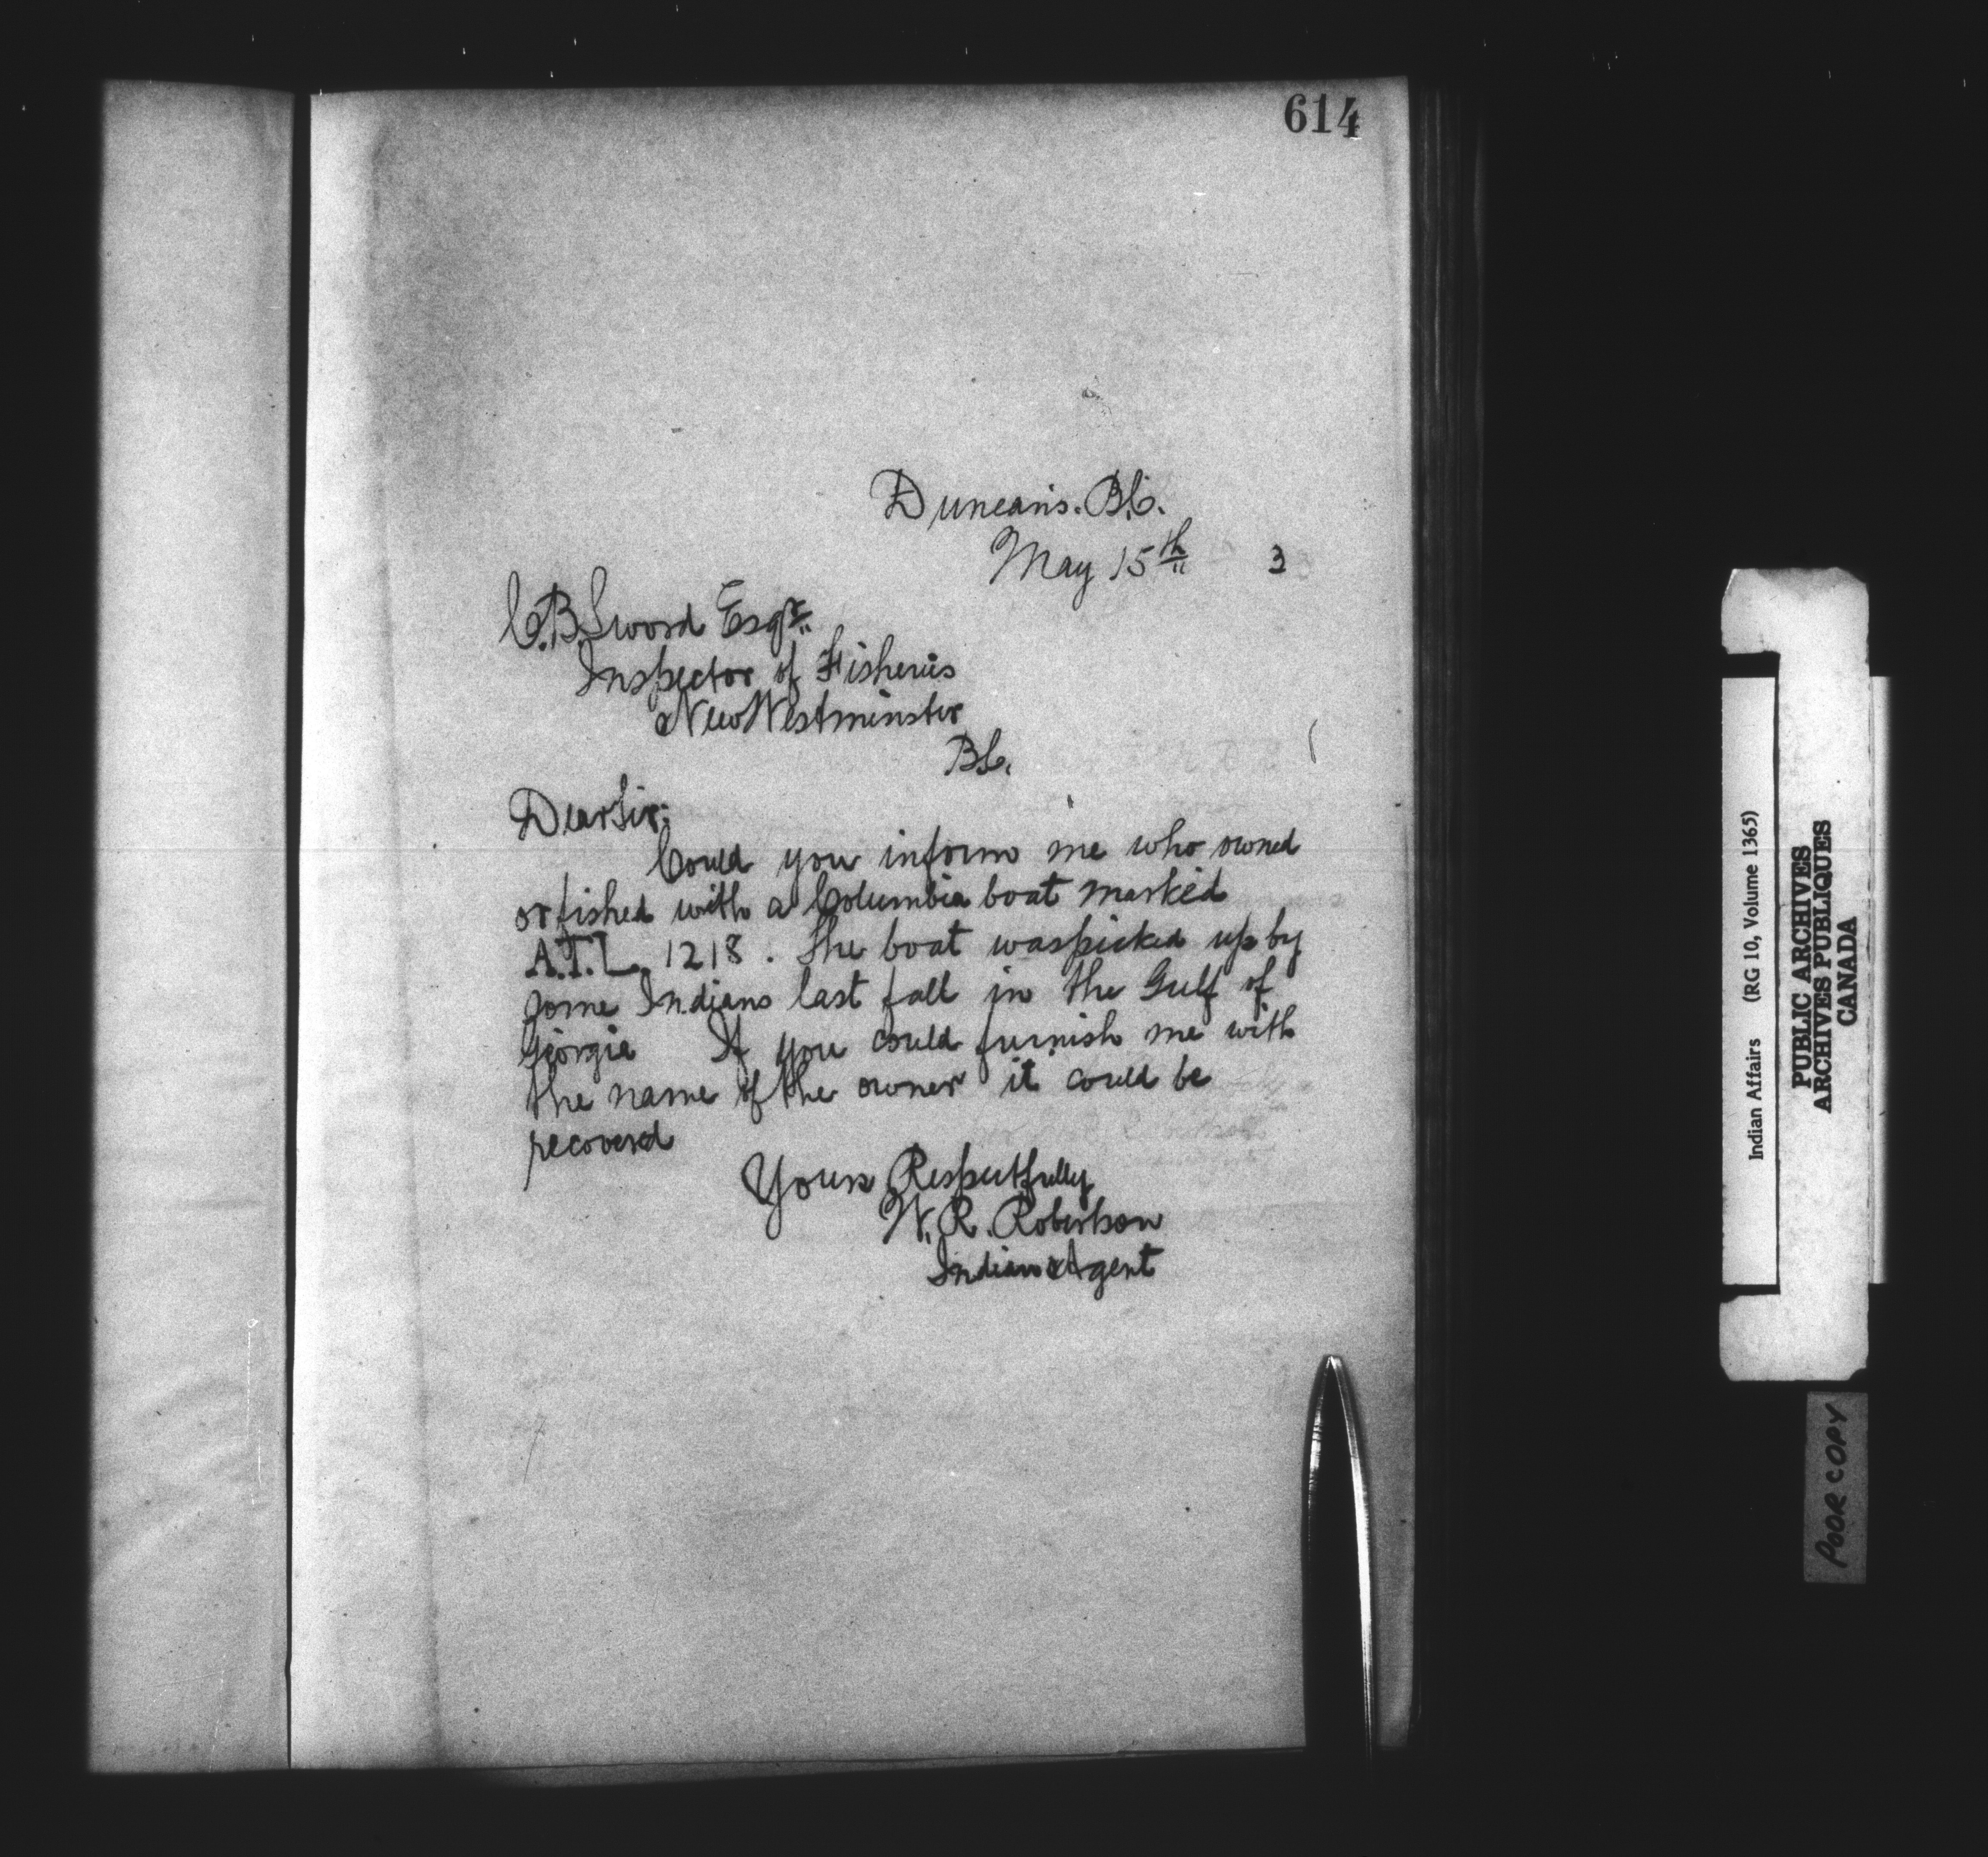 614
Duncan's. B.C.
May 15th 3
C.B. Sword Esqr.
Inspector of Fisheries
New Westminster
B.C.
Dear Sir:
Could you inform me who owned
or fished with a Columbia boat marked
A.T.L. 1218. The boat was picked up by
some Indians last fall in the Gulf of
Georgia If you could furnish me with
the name of the owner it could be
recovered
Yours Respectfully
W. R. Robertson
Indian Agent
Indian Affairs (RG 10, Volume 1365)
PUBLIC ARCHIVES
ARCHIVES PUBLIQUES
CANADA
POOR COPY